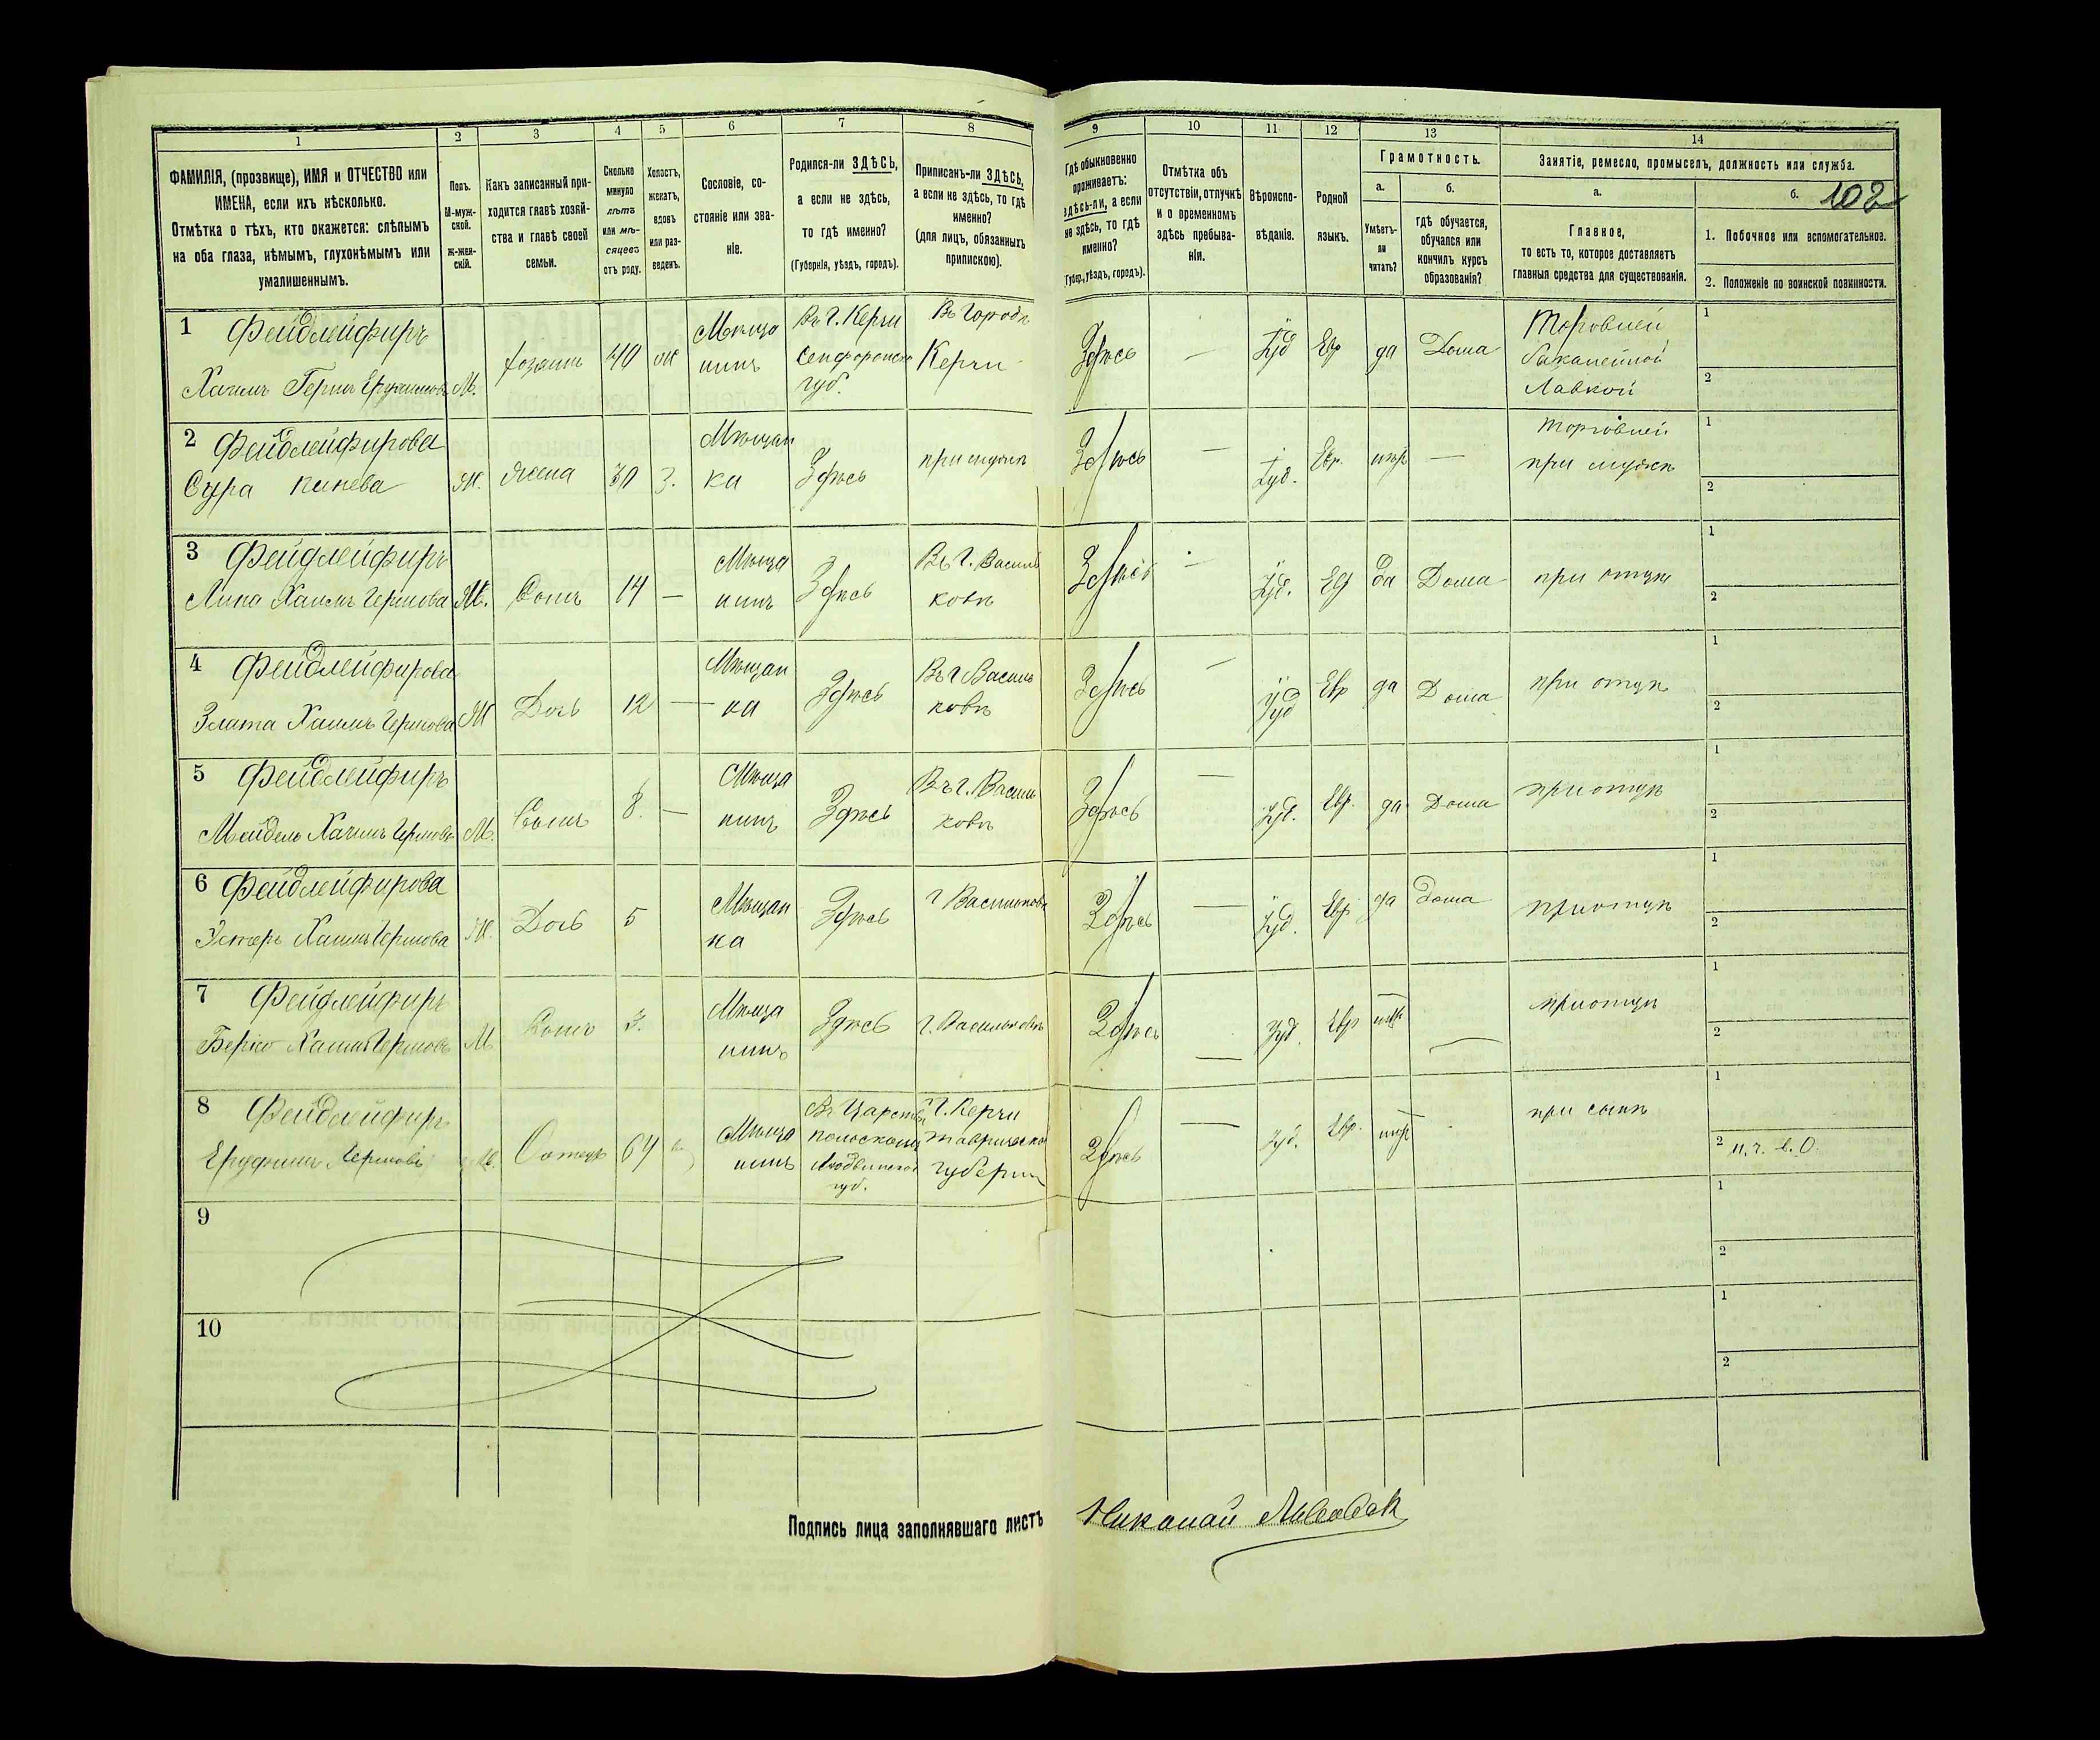 1 2 3 4 5 6 7 8 9 10 11 12 13 14
ФАМИЛІЯ, (прозвище), ИМЯ и ОТЧЕСТВО или
ИМЕНА, если ихъ нѣсколько.
Отмѣтка о тѣхъ, кто окажется: слѣпымъ
на оба глаза, нѣмымъ, глухонѣмымъ или
умалишеннымъ.
Полъ.
М-муж-
ской.
Ж-жен-
скій.
Какъ записанный при-
ходится главѣ хозяй-
ства и главѣ своей
семьи.
Сколько
минуло
лѣтъ
или мѣ-
сяцевъ
отъ роду.
Холостъ,
женатъ,
вдовъ
или раз-
веденъ.
Сословіе, со-
стояніе или зва-
ніе.
Родился-ли ЗДѢСЬ,
а если не здѣсь,
то гдѣ именно?
(Губернія, уѣздъ, городъ).
Приписанъ-ли ЗДѢСЬ,
а если не здѣсь, то гдѣ
именно?
(для лицъ, обязанныхъ
припискою).
Гдѣ обыкновенно
проживаетъ:
здѣсь-ли, а если
не здѣсь, то гдѣ
именно?
(Губер., уѣздъ, городъ).
Отмѣтка объ
отсутствіи, отлучкѣ
и о временномъ
здѣсь пребыва-
ніи.
Вѣроиспо-
вѣданіе.
Родной
языкъ.
Грамотность.
а.
Умѣетъ-
ли
читать?
б.
гдѣ обучается,
обучался или
кончилъ курсъ
образованія?
Занятіе, ремесло, промыселъ, должность или служба.
а.
Главное,
то есть то, которое доставляетъ
главныя средства для существованія.
б. 102
1. Побочное или вспомогательное.
2. Положеніе по воинской повинности.
1 Фейдлейфиръ
М. 40 Мѣща
нинъ Въ г. Керчи
губ. Въ городѣ
Керчи Здѣсь — Іуд Евр да Дома Торговлей
бакалейной
Лавкой 1
2
2 Фейдлейфирова
Сура Ж. жена 30 З. Мѣщан
ка Здѣсь при мужѣ Здѣсь — Іуд. Евр. — Торговлей
при мужѣ 1
2
3 Фейдлейфиръ
М. Сынъ 14 — Мѣща
нинъ Здѣсь Въ г. Василь
ковѣ Здѣсь — Іуд. Евр да Дома при отцѣ 1
2
4 Фейдлейфирова
Злата Ж Дочь 12 — Мѣщан
ка Здѣсь Въ г Василь
ковѣ Здѣсь — Іуд Евр да Дома при отцѣ 1
2
5 Фейдлейфиръ
М. Сынъ 8. — Мѣща
нинъ Здѣсь Въ г. Василь
ковѣ Здѣсь — Іуд. Евр. да Дома при отцѣ 1
2
6 Фейдлейфирова
Эстеръ Ж. Дочь 5 Мѣщан
ка Здѣсь г Васильковѣ Здѣсь — Іуд. Евр да Дома при отцѣ 1
2
7 Фейдлейфиръ
М Сынъ 3. Мѣща
нинъ Здѣсь г. Васильковѣ Здѣсь — Іуд. Евр — при отцѣ 1
2
8 Фейдлейфиръ
М. Отецъ 64 Мѣща
нинъ Въ Царствѣ
губ. Г. Керчи
Таврической
губерніи Здѣсь — Іуд. Евр. при сынѣ 1
2
9 1
2
10 1
2
Подпись лица заполнявшаго листъ Николай